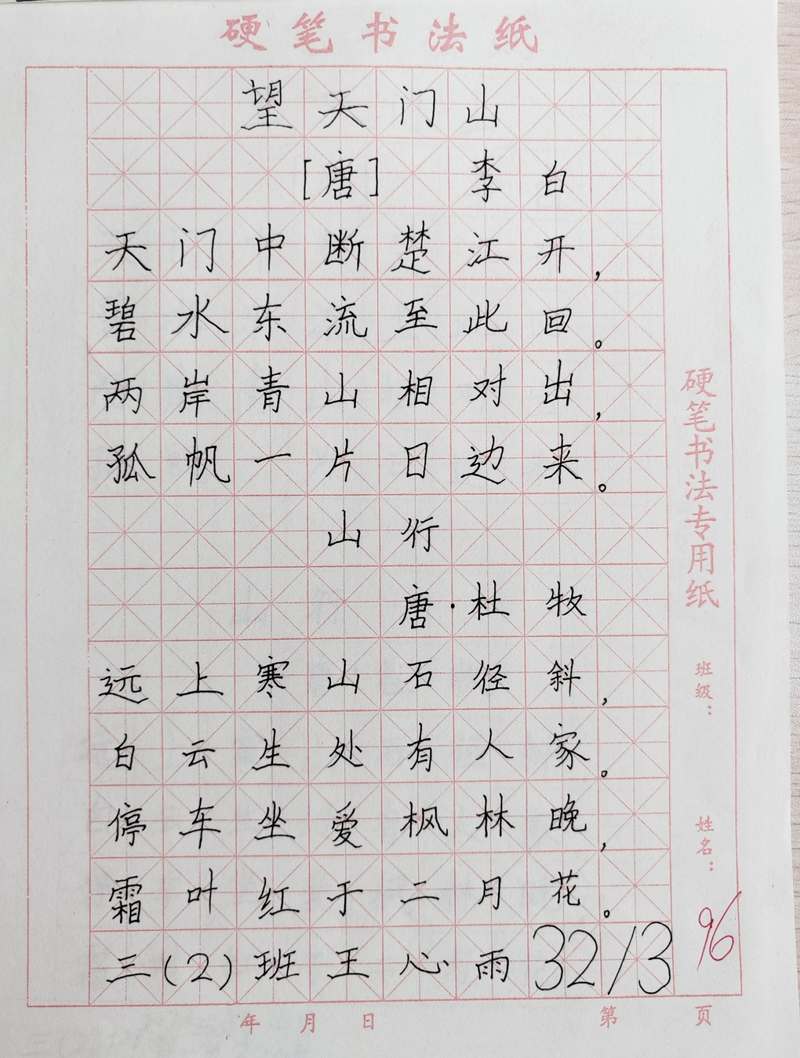 硬笔书法纸
望天门山
[唐] 李白
天门中断楚江开，
碧水东流至此回。
两岸青山相对出，
孤帆一片日边来。
山行
唐·杜牧
远上寒山石径斜，
白云生处有人家。
停车坐爱枫林晚，
霜叶红于二月花。
三(2)班王心雨 3213
96
硬笔书法专用纸
班级：
姓名：
年 月 日
第 页